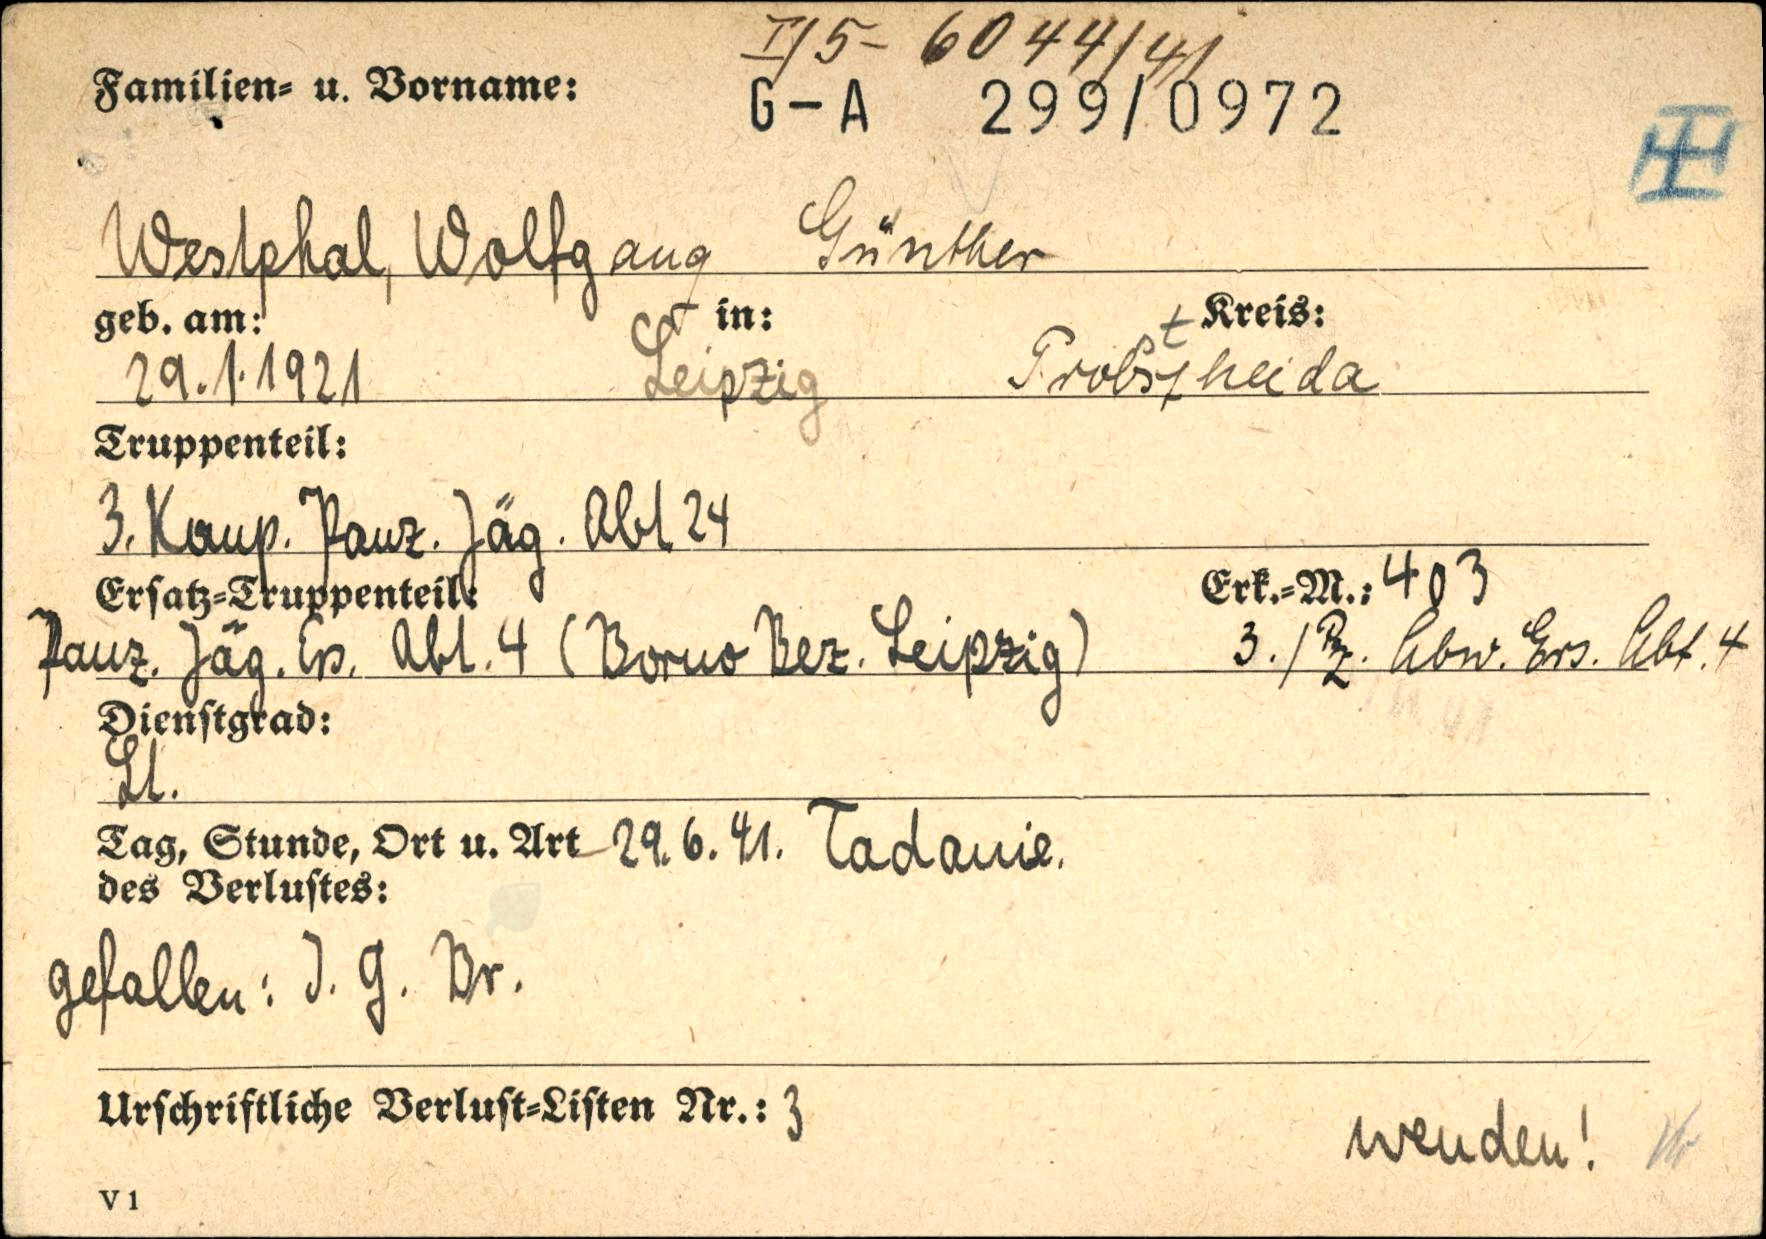 I/5- 6044/41
Familien- u. Vorname:
G-A 299/0972
Westphal, Wolfgang Günther
geb. am: in: Kreis:
29.1.1921 Leipzig Probstheida
Truppenteil:
3. Komp. Panz. Jäg. Abt 24
Ersatz-Truppenteil: Erk.-M.: 403
Panz. Jäg. Ers. Abt. 4 (Borna Bez. Leipzig) 3./Pz. Abw. Ers. Abt. 4
Dienstgrad:
Lt.
Tag, Stunde, Ort u. Art 29.6.41. Tadanie.
des Verlustes:
gefallen: J. G. Br.
Urschriftliche Verlust-Listen Nr.: 3
wenden!
V 1